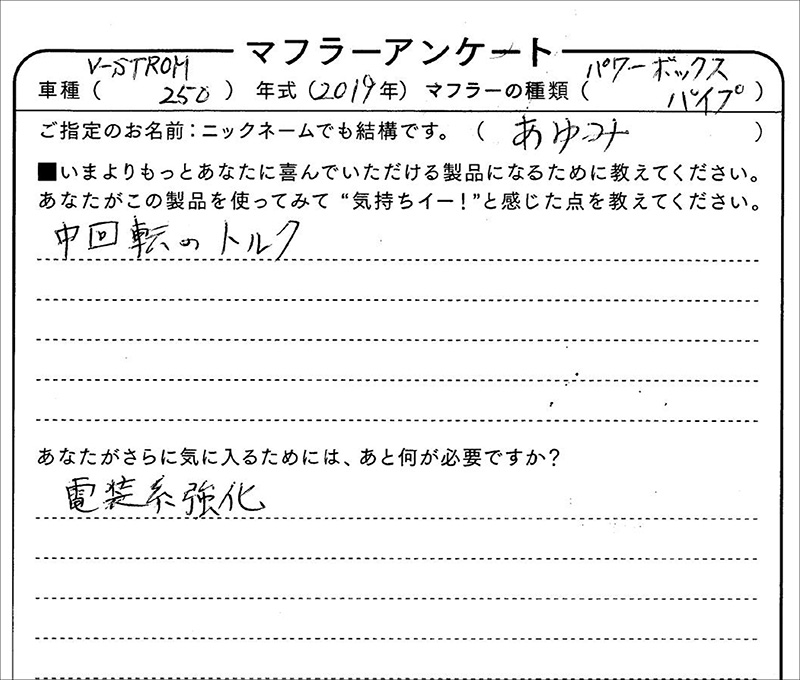 マフラーアンケート
車種（V-STROM 250）年式（2019年）マフラーの種類（パワーボックスパイプ）
ご指定のお名前：ニックネームでも結構です。（あゆみ）
■いまよりもっとあなたに喜んでいただける製品になるために教えてください。
あなたがこの製品を使ってみて“気持ちイー！”と感じた点を教えてください。
中回転のトルク
あなたがさらに気に入るためには、あと何が必要ですか？
電装系強化